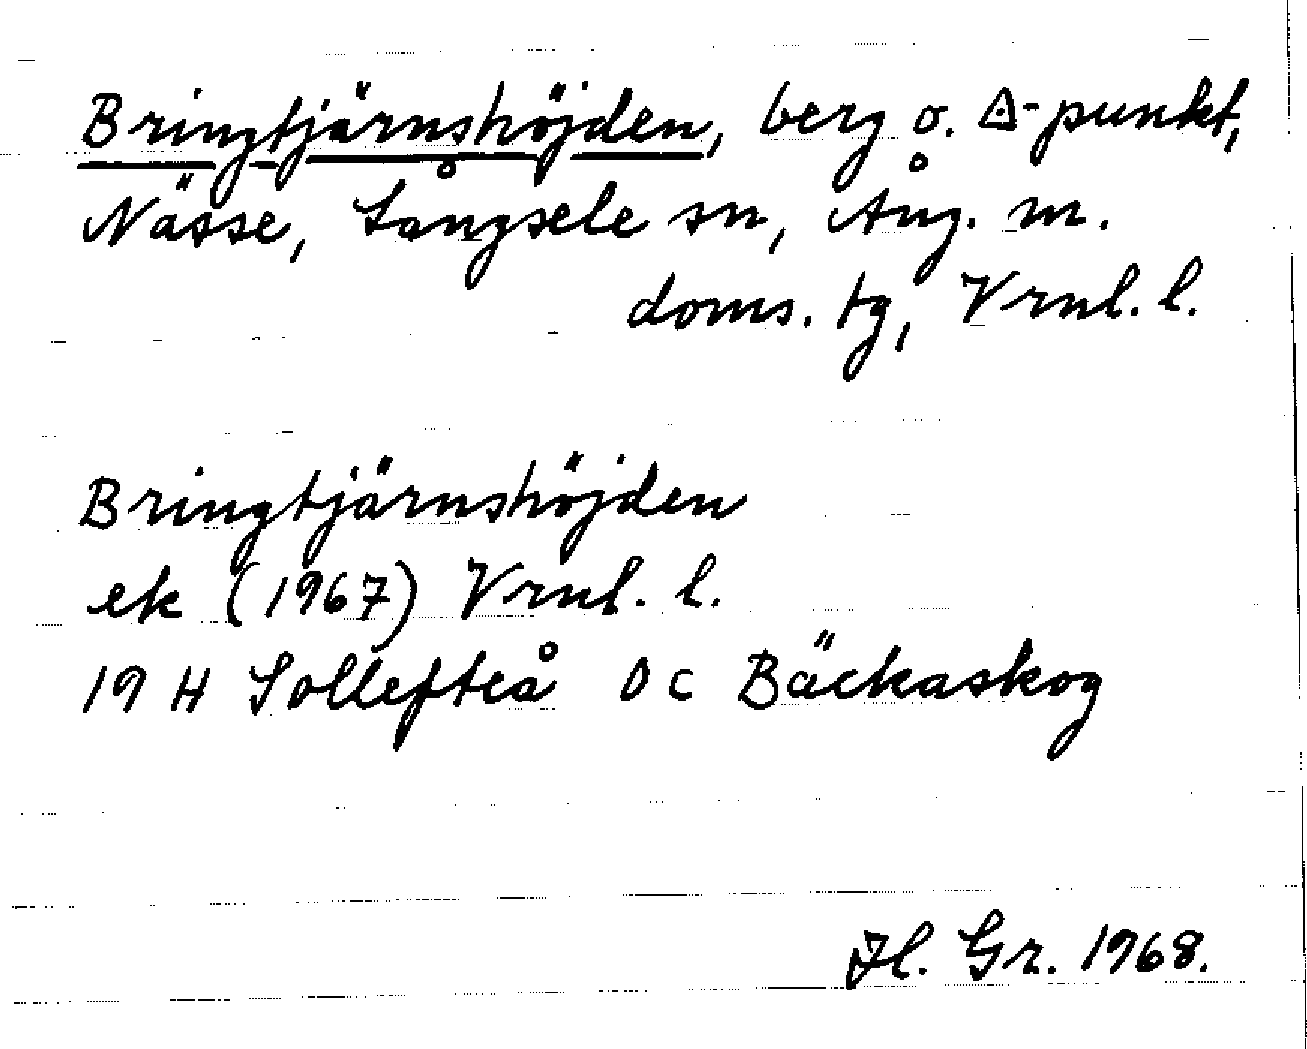 Bringtjärnshöjden, berg o. ∆-punkt,
Nässe, Långsele sn, Ång. m.
doms. tg, Vrnl. l.
Bringtjärnshöjden
ek (1967) Vrnl. l.
19 H Sollefteå 0 c Bäckaskog
Hl. Gr. 1968.